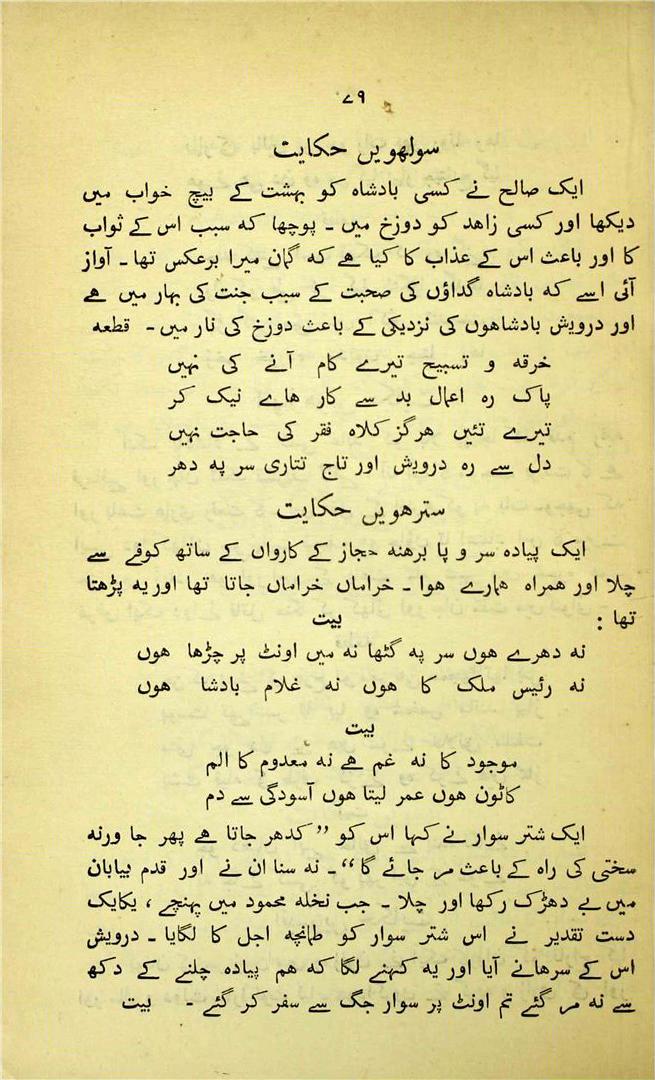 ۷۹
سولھویں حکایت
ایک صالح نے کسی بادشاہ کو بہشت کے بیچ خواب میں
دیکھا اور کسی زاھد کو دوزخ میں ۔ پوچھا کہ سبب اس کے ثواب
کا اور باعث اس کے عذاب کا کیا ھے کہ گمان میرا برعکس تھا ۔ آواز
آئی اسے کہ بادشاہ گداؤں کی صحبت کے سبب جنت کی بہار میں ھے
اور درویش بادشاھوں کی نزدیکی کے باعث دوزخ کی نار میں ۔ قطعہ
خرقہ و تسبیح تیرے کام آنے کی نہیں
پاک رہ اعمال بد سے کار ھاے نیک کر
تیرے تئیں ھرگز کلاہ فقر کی حاجت نہیں
دل سے رہ درویش اور تاج تتاری سر پہ دھر
سترھویں حکایت
ایک پیادہ سر و پا برھنہ حجاز کے کارواں کے ساتھ کوفے سے
چلا اور ھمراہ ھمارے ھوا ۔ خراماں خراماں جاتا تھا اور یہ پڑھتا
تھا :
بیت
نہ دھرے ھوں سر پہ گٹھا نہ میں اونٹ پر چڑھا ھوں
نہ رئیس ملک کا ھوں نہ غلام بادشا ھوں
بیت
موجود کا نہ غم ھے نہ معدوم کا الم
کاٹون ھوں عمر لیتا ھوں آسودگی سے دم
ایک شتر سوار نے کہا اس کو ”کدھر جاتا ھے پھر جا ورنہ
سختی کی راہ کے باعث مر جائے گا“ ۔ نہ سنا ان نے اور قدم بیابان
میں بے دھڑک رکھا اور چلا ۔ جب نخلہ محمود میں پہنچے ، یکایک
دست تقدیر نے اس شتر سوار کو طمانچہ اجل کا لگایا ۔ درویش
اس کے سرھانے آیا اور یہ کہنے لگا کہ ھم پیادہ چلنے کے دکھ
سے نہ مر گئے تم اونٹ پر سوار جگ سے سفر کر گئے ۔ بیت